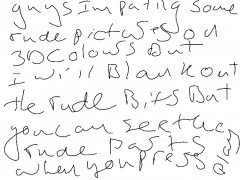 guys Im pating some
rude pictures on
3D Colours But
I will Blank out
the rude Bits But
you can see the
rude parts
when you press